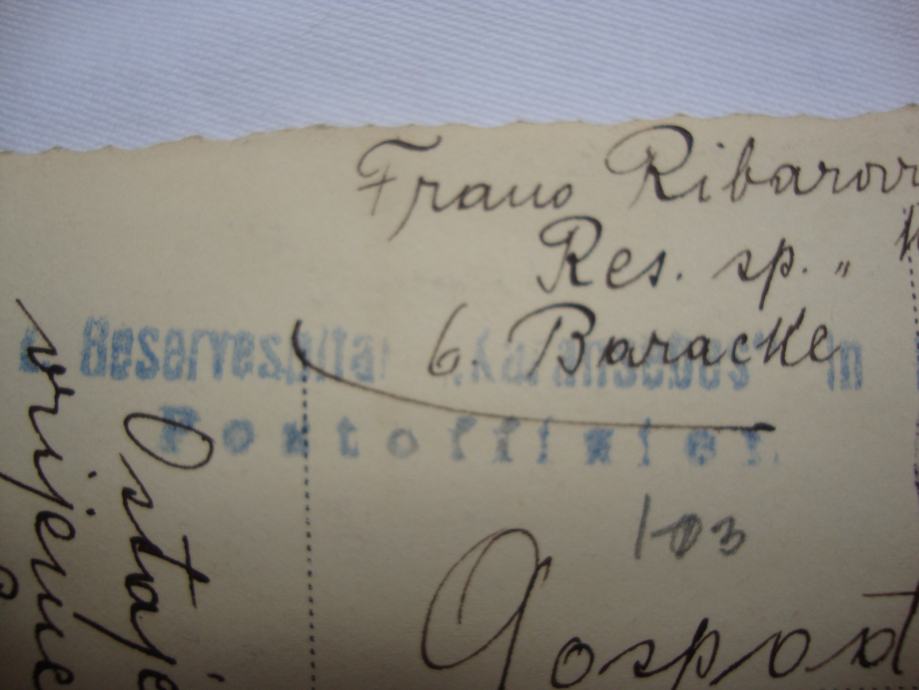 Frano Ribarov
Res. sp. "
6. Baracke
Reservespital "Karansebes" in
Postoffizier.
103
Gospod
Ostaje
vrijeme